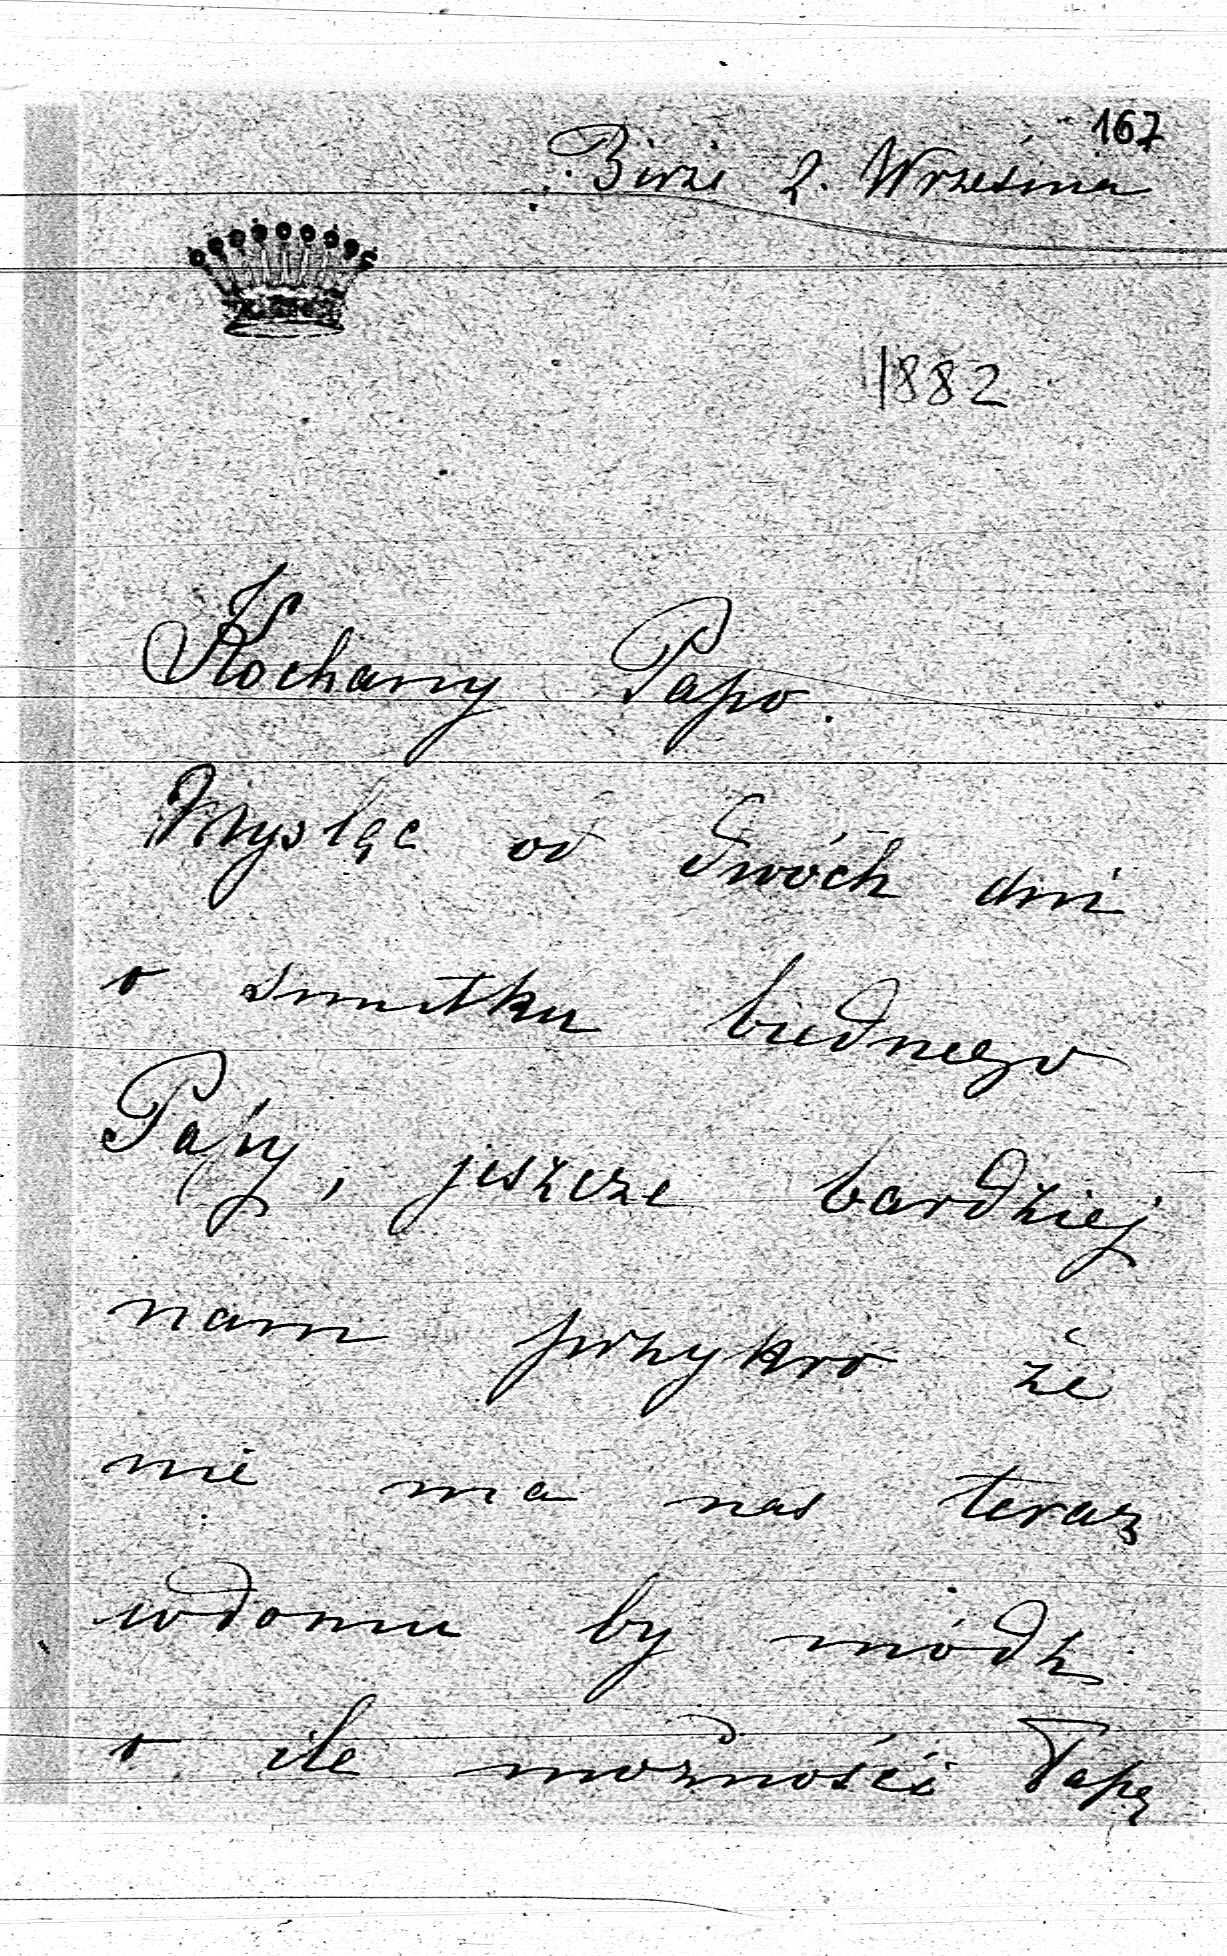 167
Birże 2. Września
1882
Kochany Papo.
Mysląc od dwóch dni
o smutku biednego
Papy, jeszcze bardziej
nam przykro że
nie ma nas teraz
wdomu by módz
o ile możności Papę